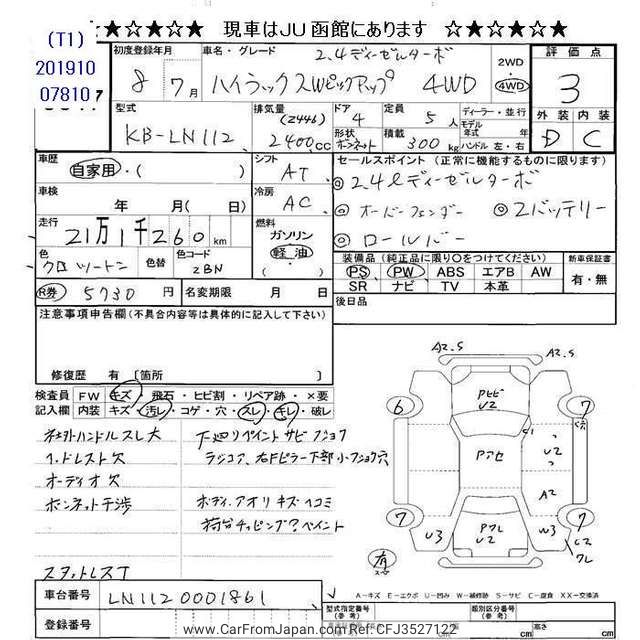 ☆★☆★☆★ 現車はJU函館にあります ☆★☆★☆★
(T1)
201910
07810
初度登録年月 8年 7月
車名・グレード 2.4ディーゼルターボ
ハイラックスWピックアップ 4WD
2WD
・
4WD
評価点
3
外装 内装
D C
型式 KB-LN112
排気量 (2446) 2400cc
ドア 4
形状 ボンネット
定員 5人
積載 300kg
ディーラー・並行
モデル年式 年式
ハンドル 左・右
車歴
自家用・( )
シフト AT
車検
年 月( 日)
冷房 AC
走行
21万1千260km
燃料
ガソリン
軽油
( )
色 クロツートン
色替
色コード 2BN
R券 5730円
名変期限 月 日
セールスポイント(正常に機能するものに限ります)
◎2.4ℓディーゼルターボ
◎オーバーフェンダー ◎2バッテリー
◎ロールバー
装備品(純正品に限り○をつけてください)
PS PW ABS エアB AW
SR ナビ TV 本革
新車保証書
有・無
後日品
注意事項申告欄(不具合内容等は具体的に記入して下さい)
修復歴 有〔箇所 〕
検査員 FW キズ・飛石・ヒビ割・リペア跡・×要
記入欄 内装 キズ・汚レ・コゲ・穴・スレ・キレ・破レ
ハンドルスレ大
ヘッドレスト欠
オーディオ欠
ボンネット干渉
スタットレスT
下廻りペイント サビ フショク
ラジコア、右Fピラー下部小フショク穴
ボディ、アオリ キズヘコミ
荷台チッピング?ペイント
A2.5
A2.5
6
7
7
7
Pトビ
U2
C1
U2
Pアセ
A2
Pクレ
U2
U3
W3
C2
クレ
有
A-キズ E-エクボ U-凹み W-補修跡 S-サビ C-腐食 XX-交換済
車台番号 LN1120001861
登録番号
型式指定番号
(参考)
類別区分番号
(参考)
長さ cm
幅 cm
高さ cm
www.CarFromJapan.com Ref: CFJ3527122